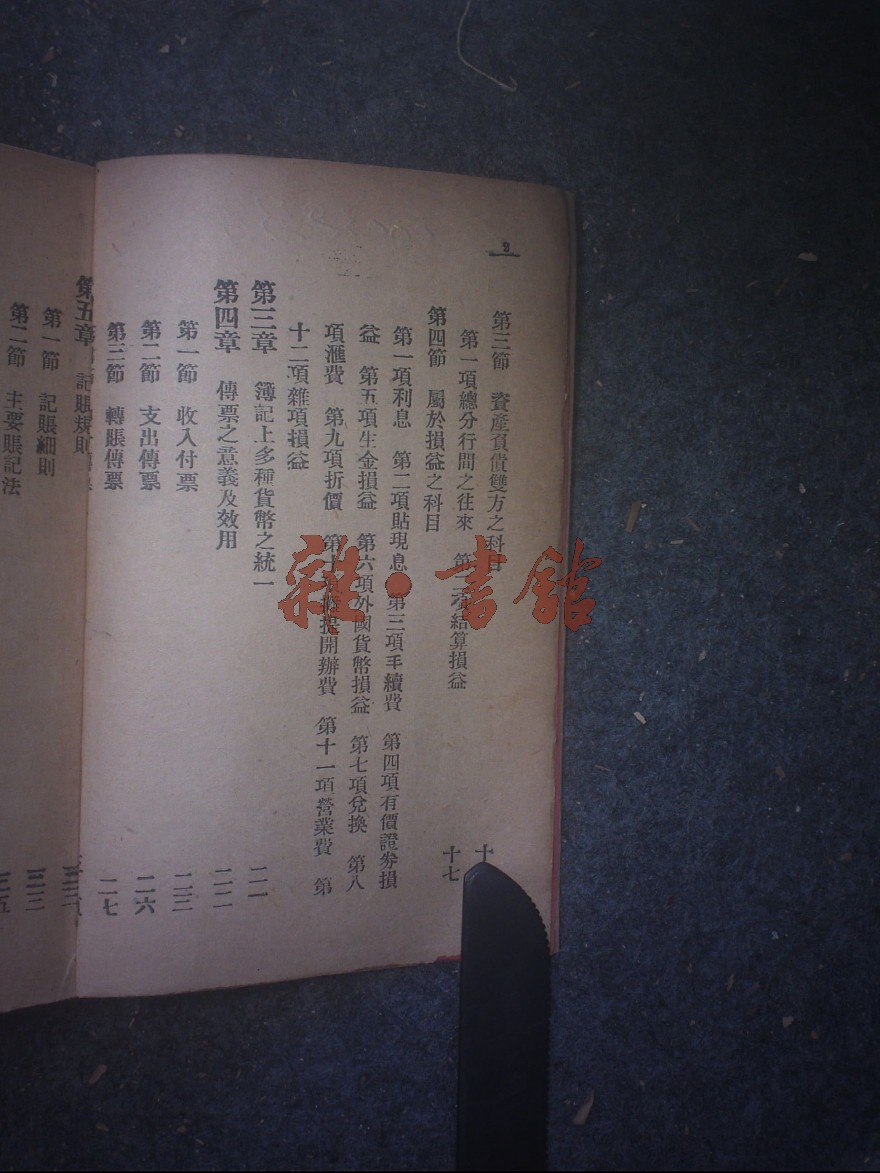 2
第三節 資產負債雙方之科目 十
第一項總分行間之往來 第二項結算損益
第四節 屬於損益之科目 十七
第一項利息 第二項貼現息 第三項手續費 第四項有價證券損
益 第五項生金損益 第六項外國貨幣損益 第七項兌換 第八
項滙費 第九項折價 第十項攤提開辦費 第十一項營業費 第
十二項雜項損益
第三章 簿記上多種貨幣之統一 二一
第四章 傳票之意義及效用 二二
第一節 收入付票 二三
第二節 支出傳票 二六
第三節 轉賬傳票 二七
第五章 記賬規則
第一節 記賬細則 三三
第二節 主要賬記法 三五
雜·書館